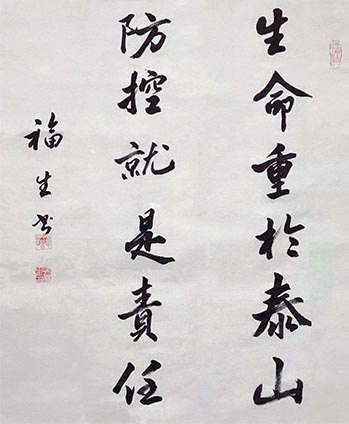 生命重於泰山
防控就是責任
福生书